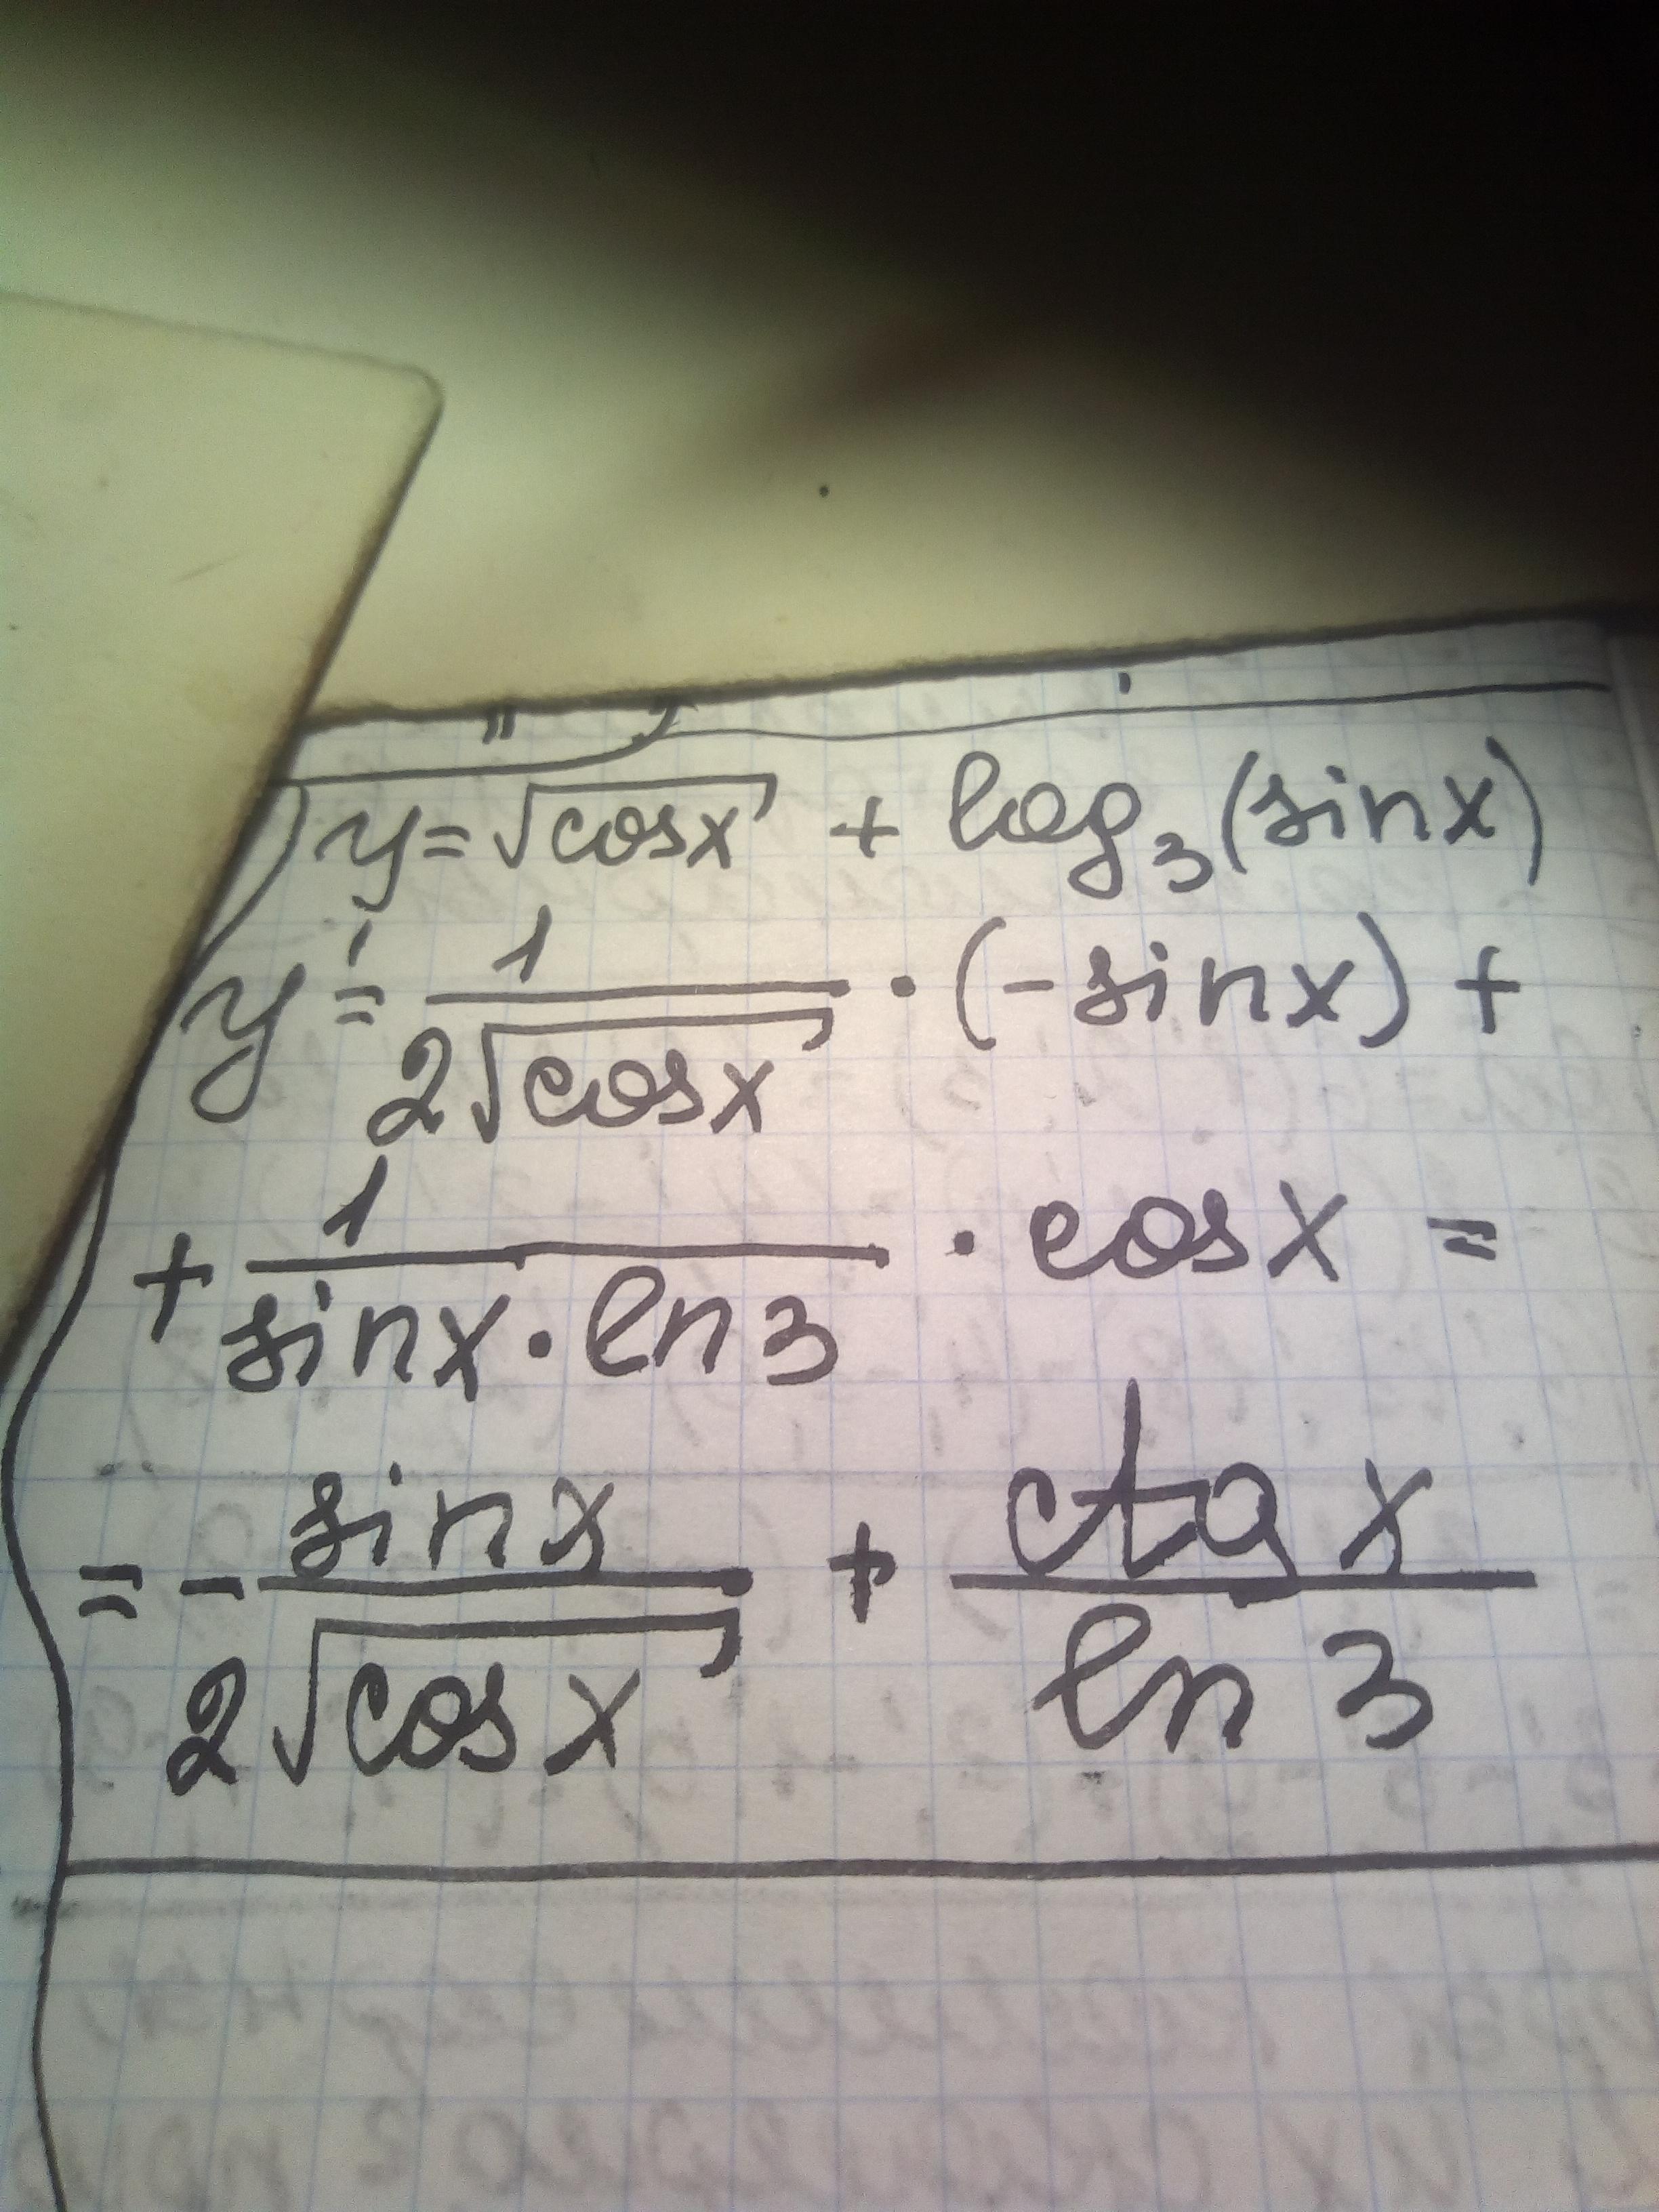 y = √cosx + log₃(sinx)
y' = 1/(2√cosx) · (-sinx) +
+ 1/(sinx · ln3) · cosx =
= - sinx/(2√cosx) + ctg x/ln 3